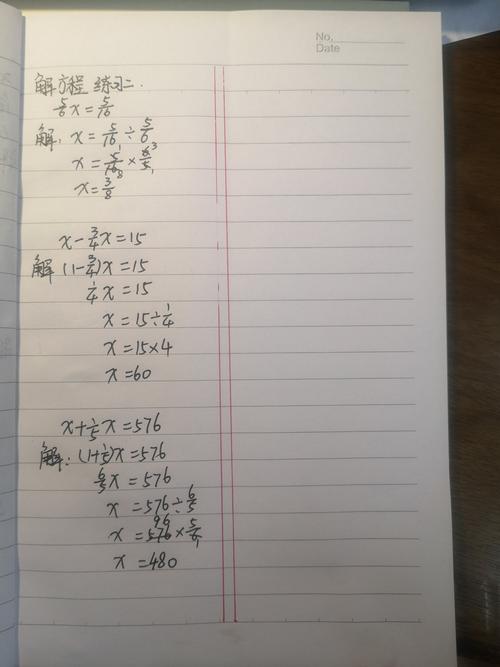 No.
Date
解方程 练习二.
5/6 x = 5/16
解: x = 5/16 ÷ 5/6
x = 5/16 × 6/5
x = 3/8
x - 3/4 x = 15
解 (1 - 3/4)x = 15
1/4 x = 15
x = 15 ÷ 1/4
x = 15 × 4
x = 60
x + 1/5 x = 576
解: (1 + 1/5)x = 576
6/5 x = 576
x = 576 ÷ 6/5
x = 576 × 5/6
x = 480